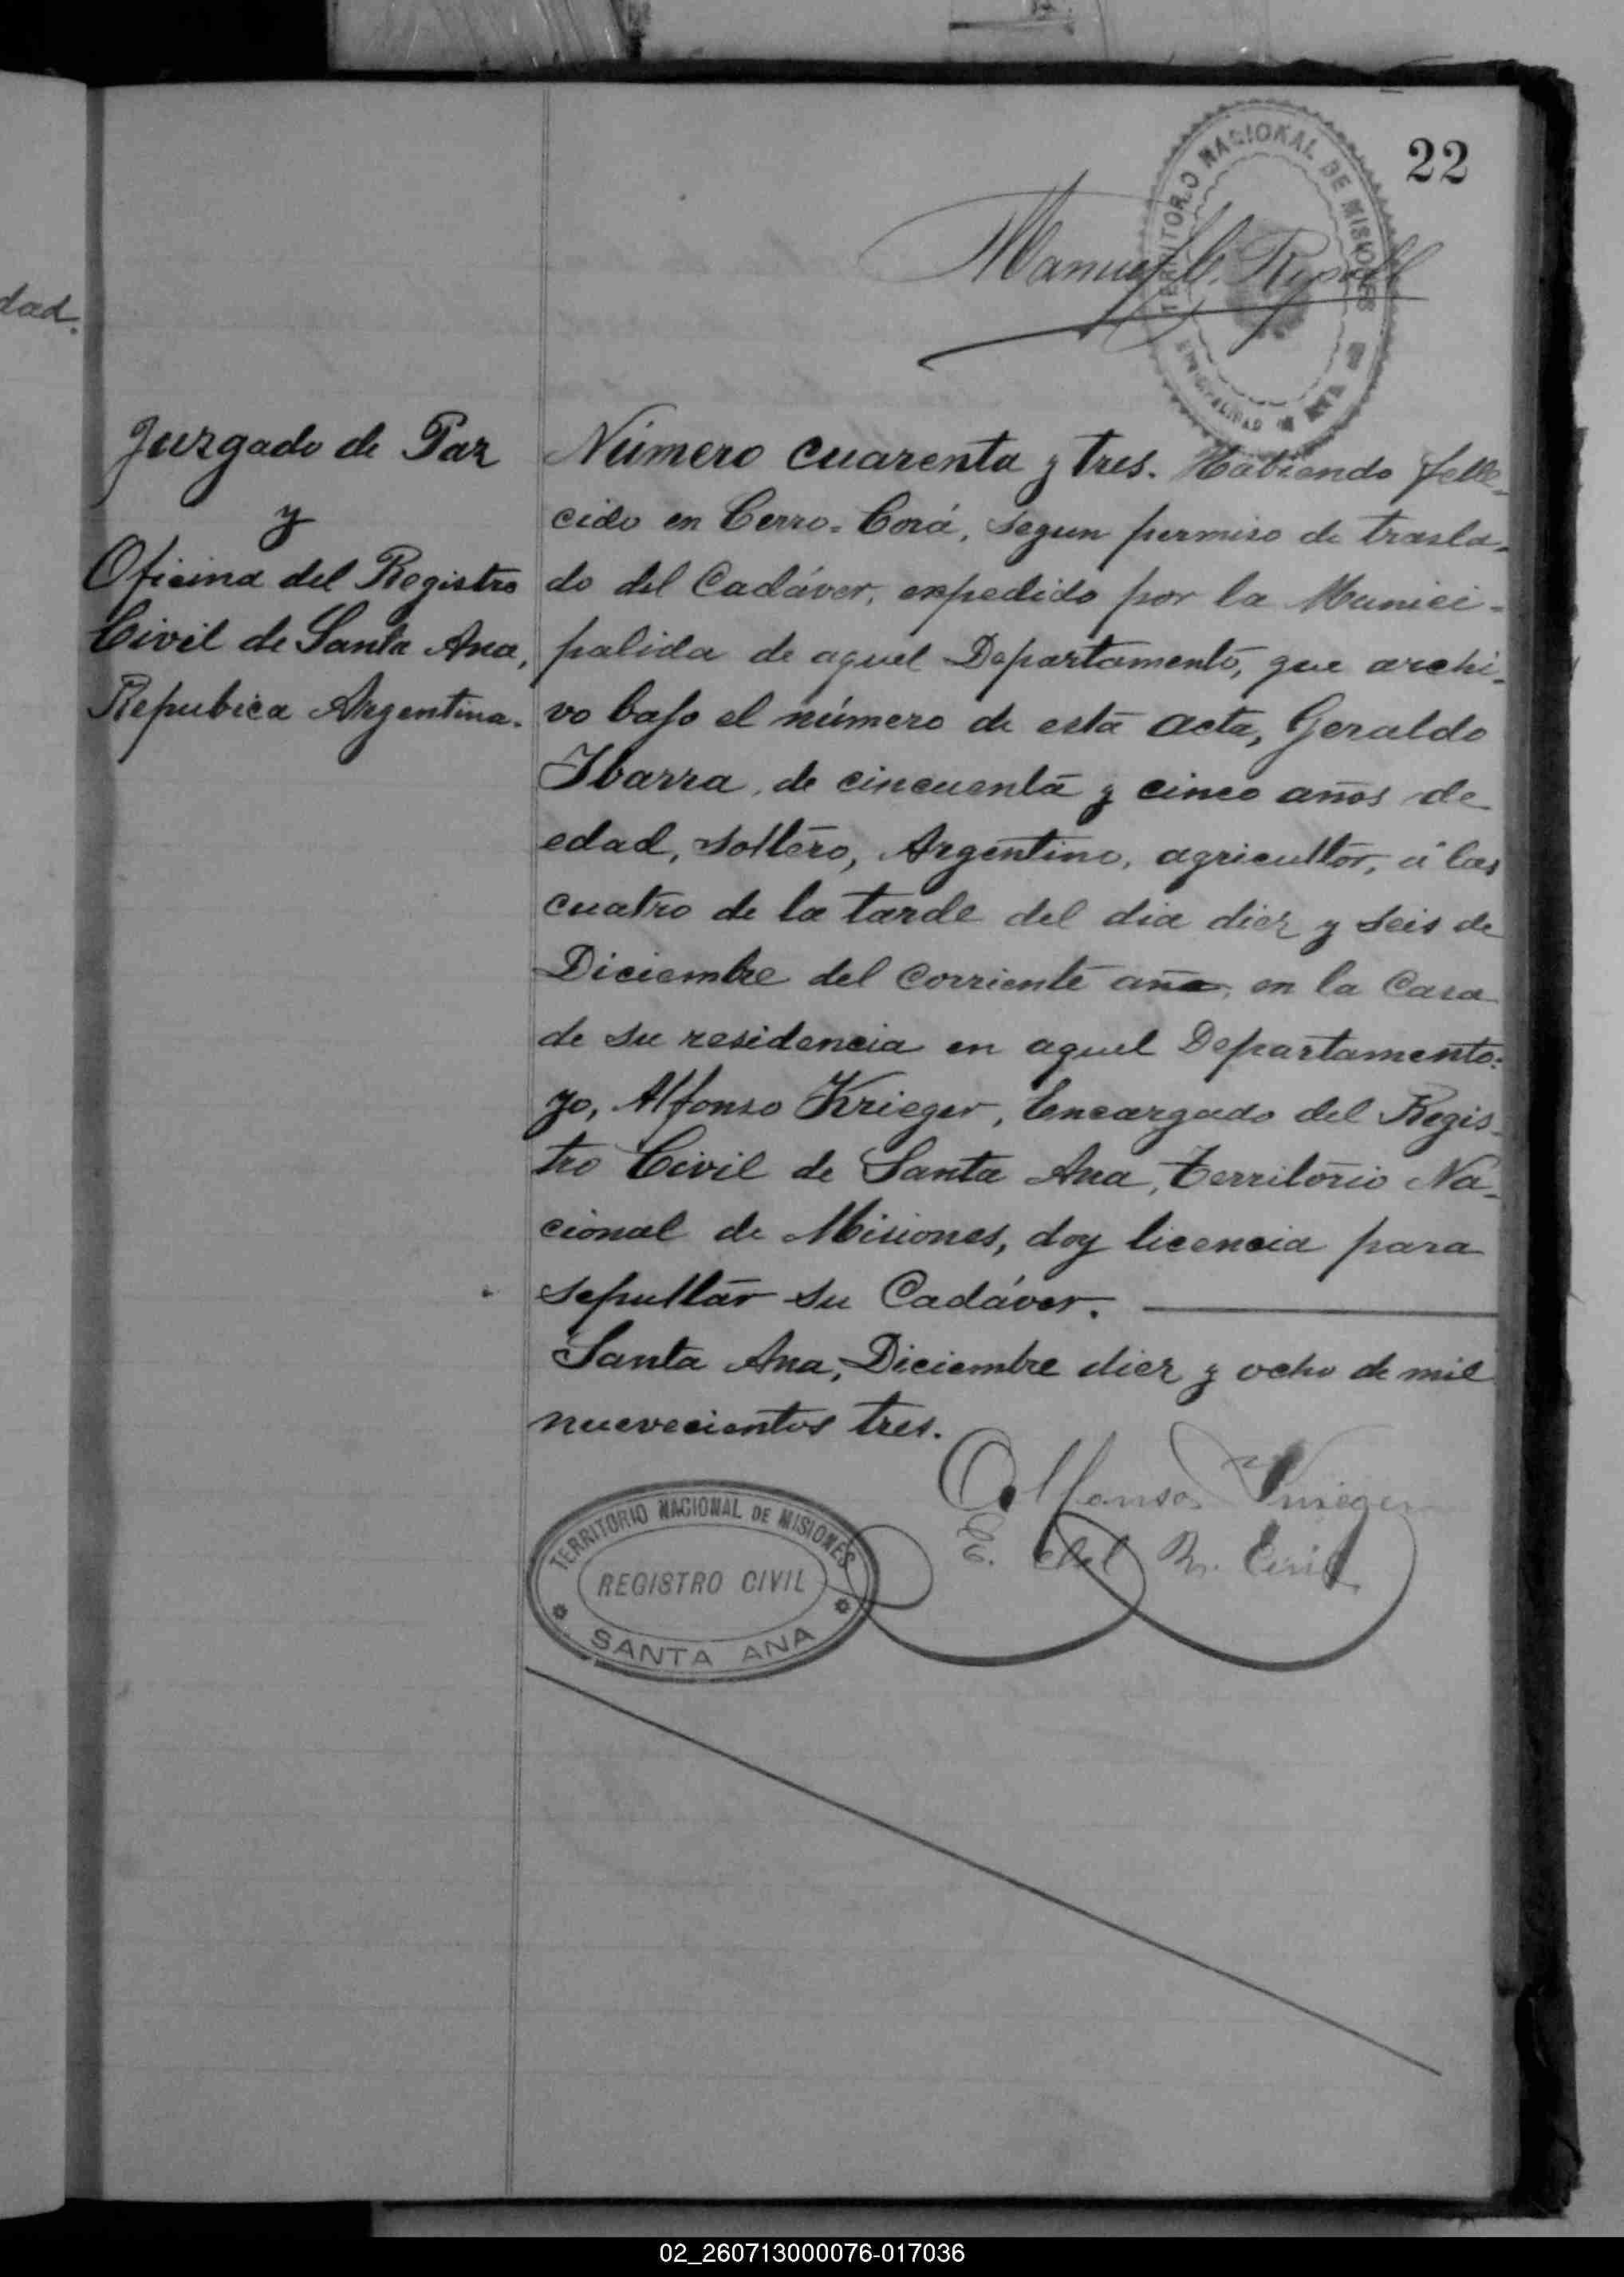 22
TERRITORIO NACIONAL DE MISIONES
MUNICIPALIDAD ANA
Manuel
dad.
Juzgado de Paz
y
Oficina del Registro
Civil de Santa Ana,
Repubica Argentina.
Número cuarenta y tres. Habiendo felle-
cido en Cerro-Corá, segun permiso de trasla-
do del Cadáver, expedido por la Munici-
palida de aquel Departamento, que archi-
vo bajo el número de esta acta, Geraldo
Ibarra, de cincuenta y cinco años de
edad, soltero, Argentino, agricultor, á las
cuatro de la tarde del dia diez y seis de
Diciembre del corriente año, en la Casa
de su residencia en aquel Departamento:
yo, Alfonso Krieger, Encargado del Regis-
tro Civil de Santa Ana, Territorio Na-
cional de Misiones, doy licencia para
sepultar su Cadáver.
Santa Ana, Diciembre diez y ocho de mil
nuevecientos tres.
Alfonso Krieger
E. del R. Civil
TERRITORIO NACIONAL DE MISIONES
REGISTRO CIVIL
SANTA ANA
02_260713000076-017036